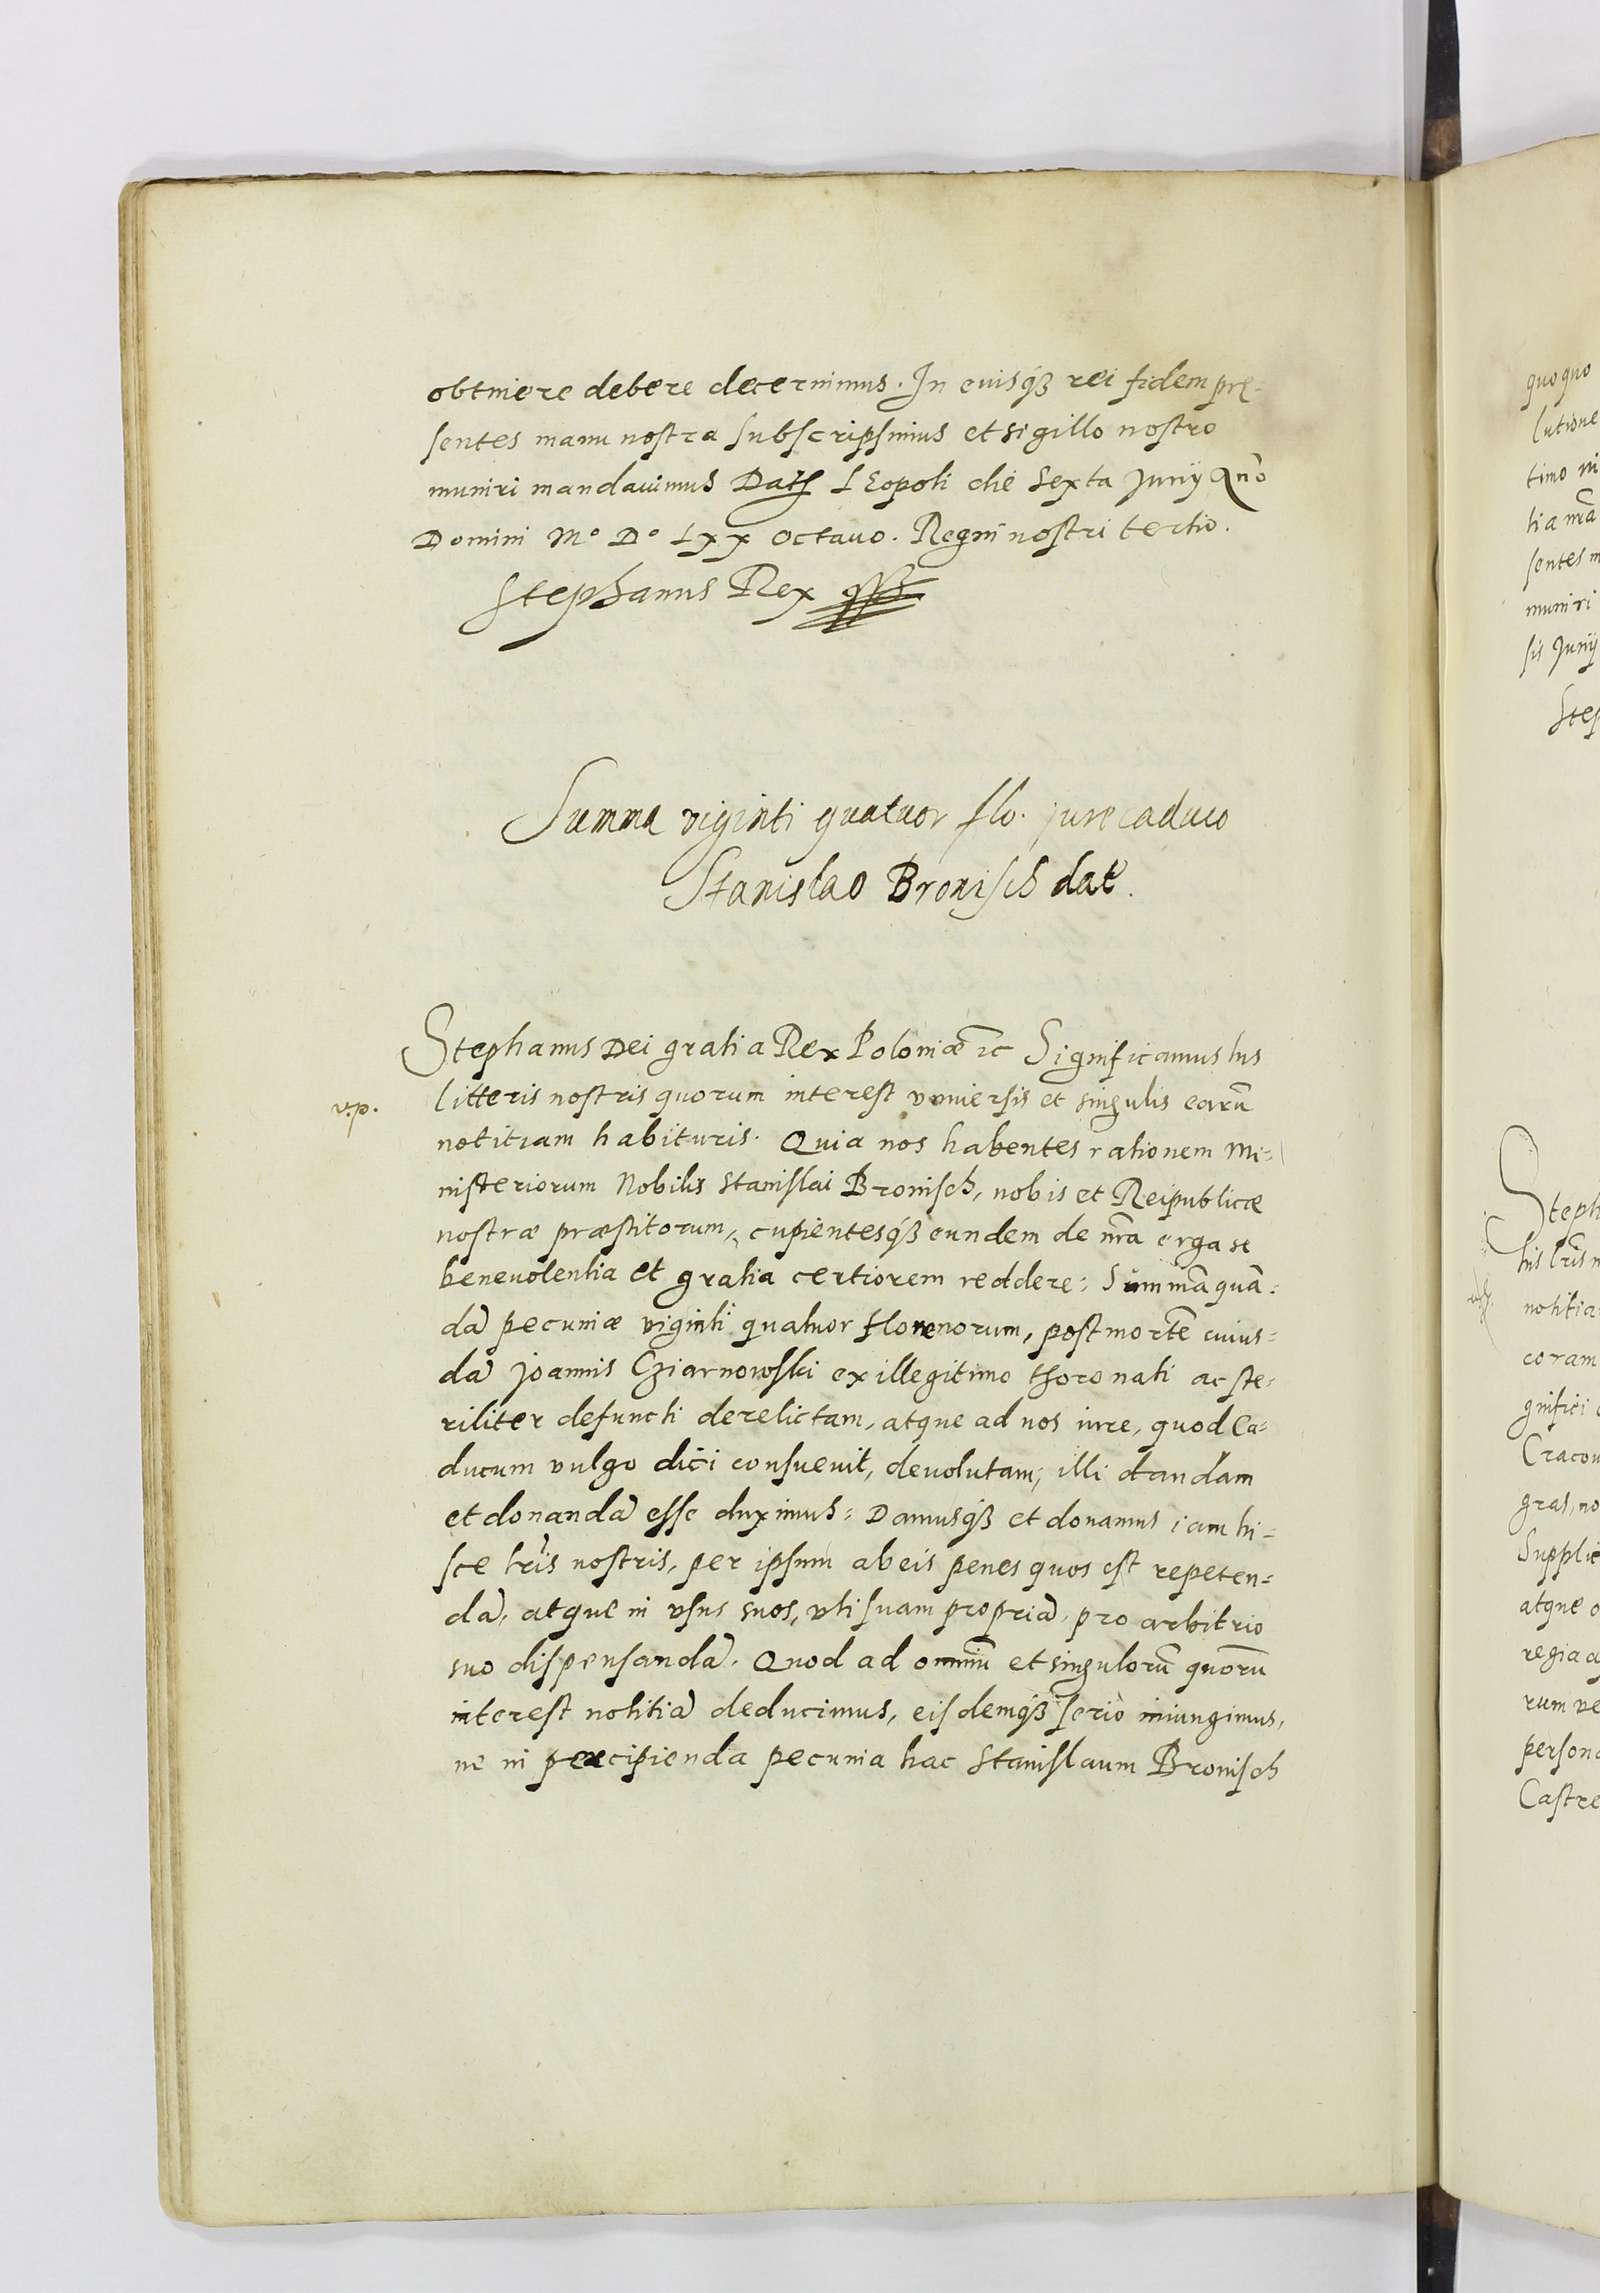 obtinere debere decernimus. In cuiusq́ꝫ rei fidem prę-
sentes manu nostra subscripsimus et sigillo nostro
muniri mandauimus Datꝭ Leopoli die sexta Junij Añno
Domini Mº Dº Lxx octauo. Regni nostri tertio.
Stephanus Rex ssß
Summa viginti quatuor flo. jure caduco
Stanislao Bronisch dat̃.
Stephanus Dei gratia Rex Poloniæ ꝛc̃ Significamus his
v.p.
litteris nostris quorum interest vniuersis et singulis earũ
notitiam habituris. Quia nos habentes rationem Mi-
nisteriorum Nobilis Stanislai Bronisch, nobis et Reipublicæ
nostræ præstitorum, cupientesq́ꝫ eundem de nr̃a erga se
beneuolentia et gratia certiorem reddere: Summã quã-
dã pecuniæ viginti quatuor florenorum, post mortẽ cuius-
dã Joannis Cziarnowski ex illegitimo thoro nati ac ste-
riliter defuncti derelictam, atque ad nos iure, quod Ca-
ducum vulgo dici consueuit, deuolutam, illi dandam
et donandã esse duximus: Damusq́ꝫ et donamus iam hi-
sce lr̃is nostris, per ipsum ab eis penes quos est repeten-
dã, atque in vsus suos, vti suam propriã, pro arbitrio
suo dispensandã. Quod ad omniũ et singulorũ quorũ
interest notitiã deducimus, eisdemq́ꝫ serio iniungimus,
ne in percipienda pecunia hac Stanislaum Bronisch
quoquo
lutione
timo
tia nr̃a
sentes m
muniri
sis Junij
Step
Steph
his lr̃is n
notitia
coram
gnifici
Cracou
gras, no
Supplic
atque o
regia a
rum ve
persona
Castre